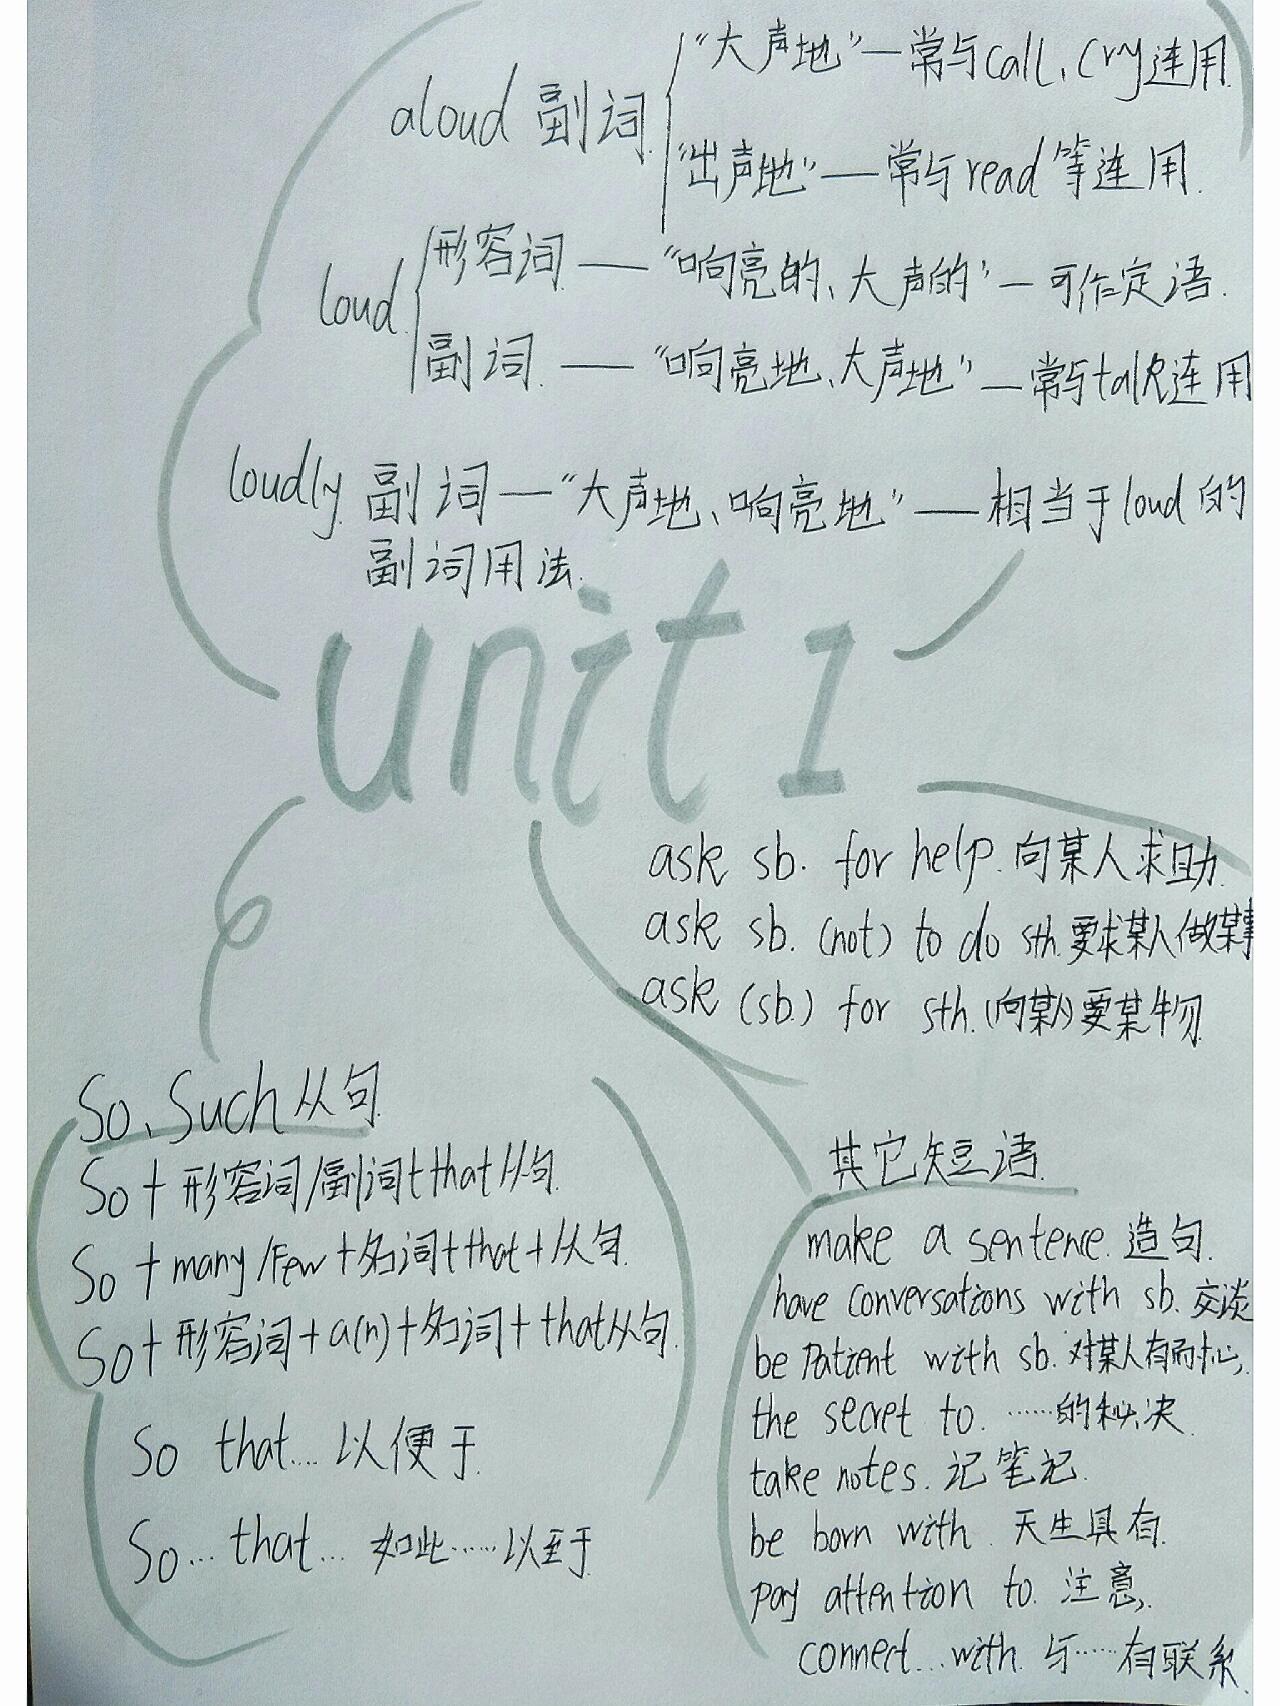 aloud 副词 "大声地"—常与call、cry连用
"出声地"—常与read等连用.
loud 形容词—"响亮的、大声的"—可作定语.
副词.—"响亮地、大声地"—常与talk连用
loudly 副词—"大声地、响亮地"—相当于loud的
副词用法.
unit1
ask sb. for help.向某人求助.
ask sb. (not) to do sth.要求某人做某事
ask (sb.) for sth.(向某人)要某物.
So、Such从句.
So+形容词/副词+that从句.
So+many/few+名词+that+从句.
So+形容词+a(n)+名词+that从句.
So that...以便于.
So...that...如此……以至于.
其它短语.
make a sentence.造句.
have conversations with sb.交谈
be patient with sb.对某人有耐心.
the secret to.……的秘决
take notes.记笔记.
be born with.天生具有.
pay attention to.注意.
connect...with.与……有联系.